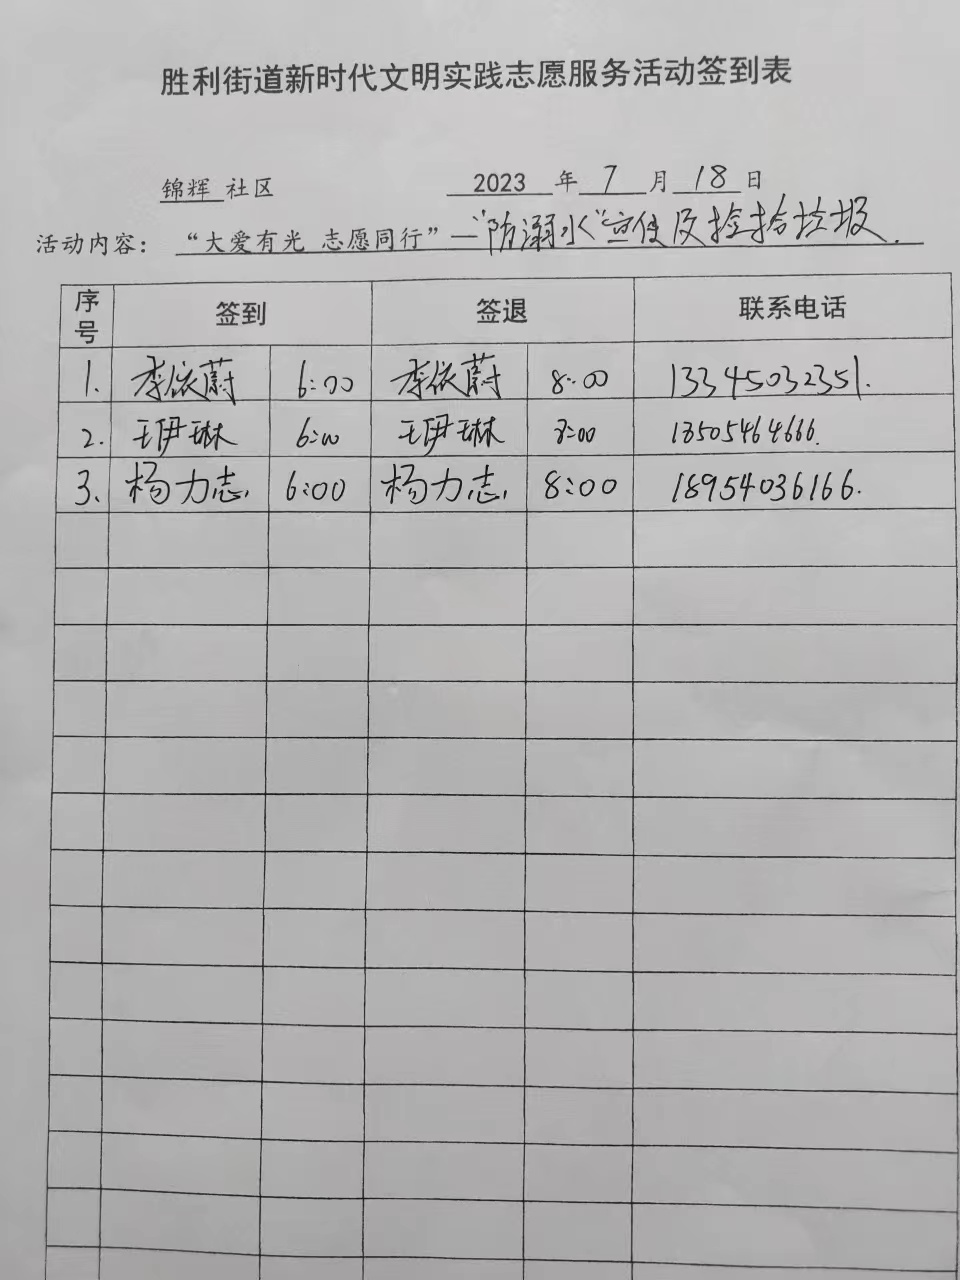 胜利街道新时代文明实践志愿服务活动签到表
锦辉 社区 2023 年 7 月 18 日
活动内容： “大爱有光 志愿同行”—“防溺水”宣传及捡拾垃圾.
序号 签到 签退 联系电话
1. 李依蔚 6:00 李依蔚 8:00 13345032351.
2. 王伊琳 6:00 王伊琳 8:00 13505464666.
3. 杨力志 6:00 杨力志 8:00 18954036166.